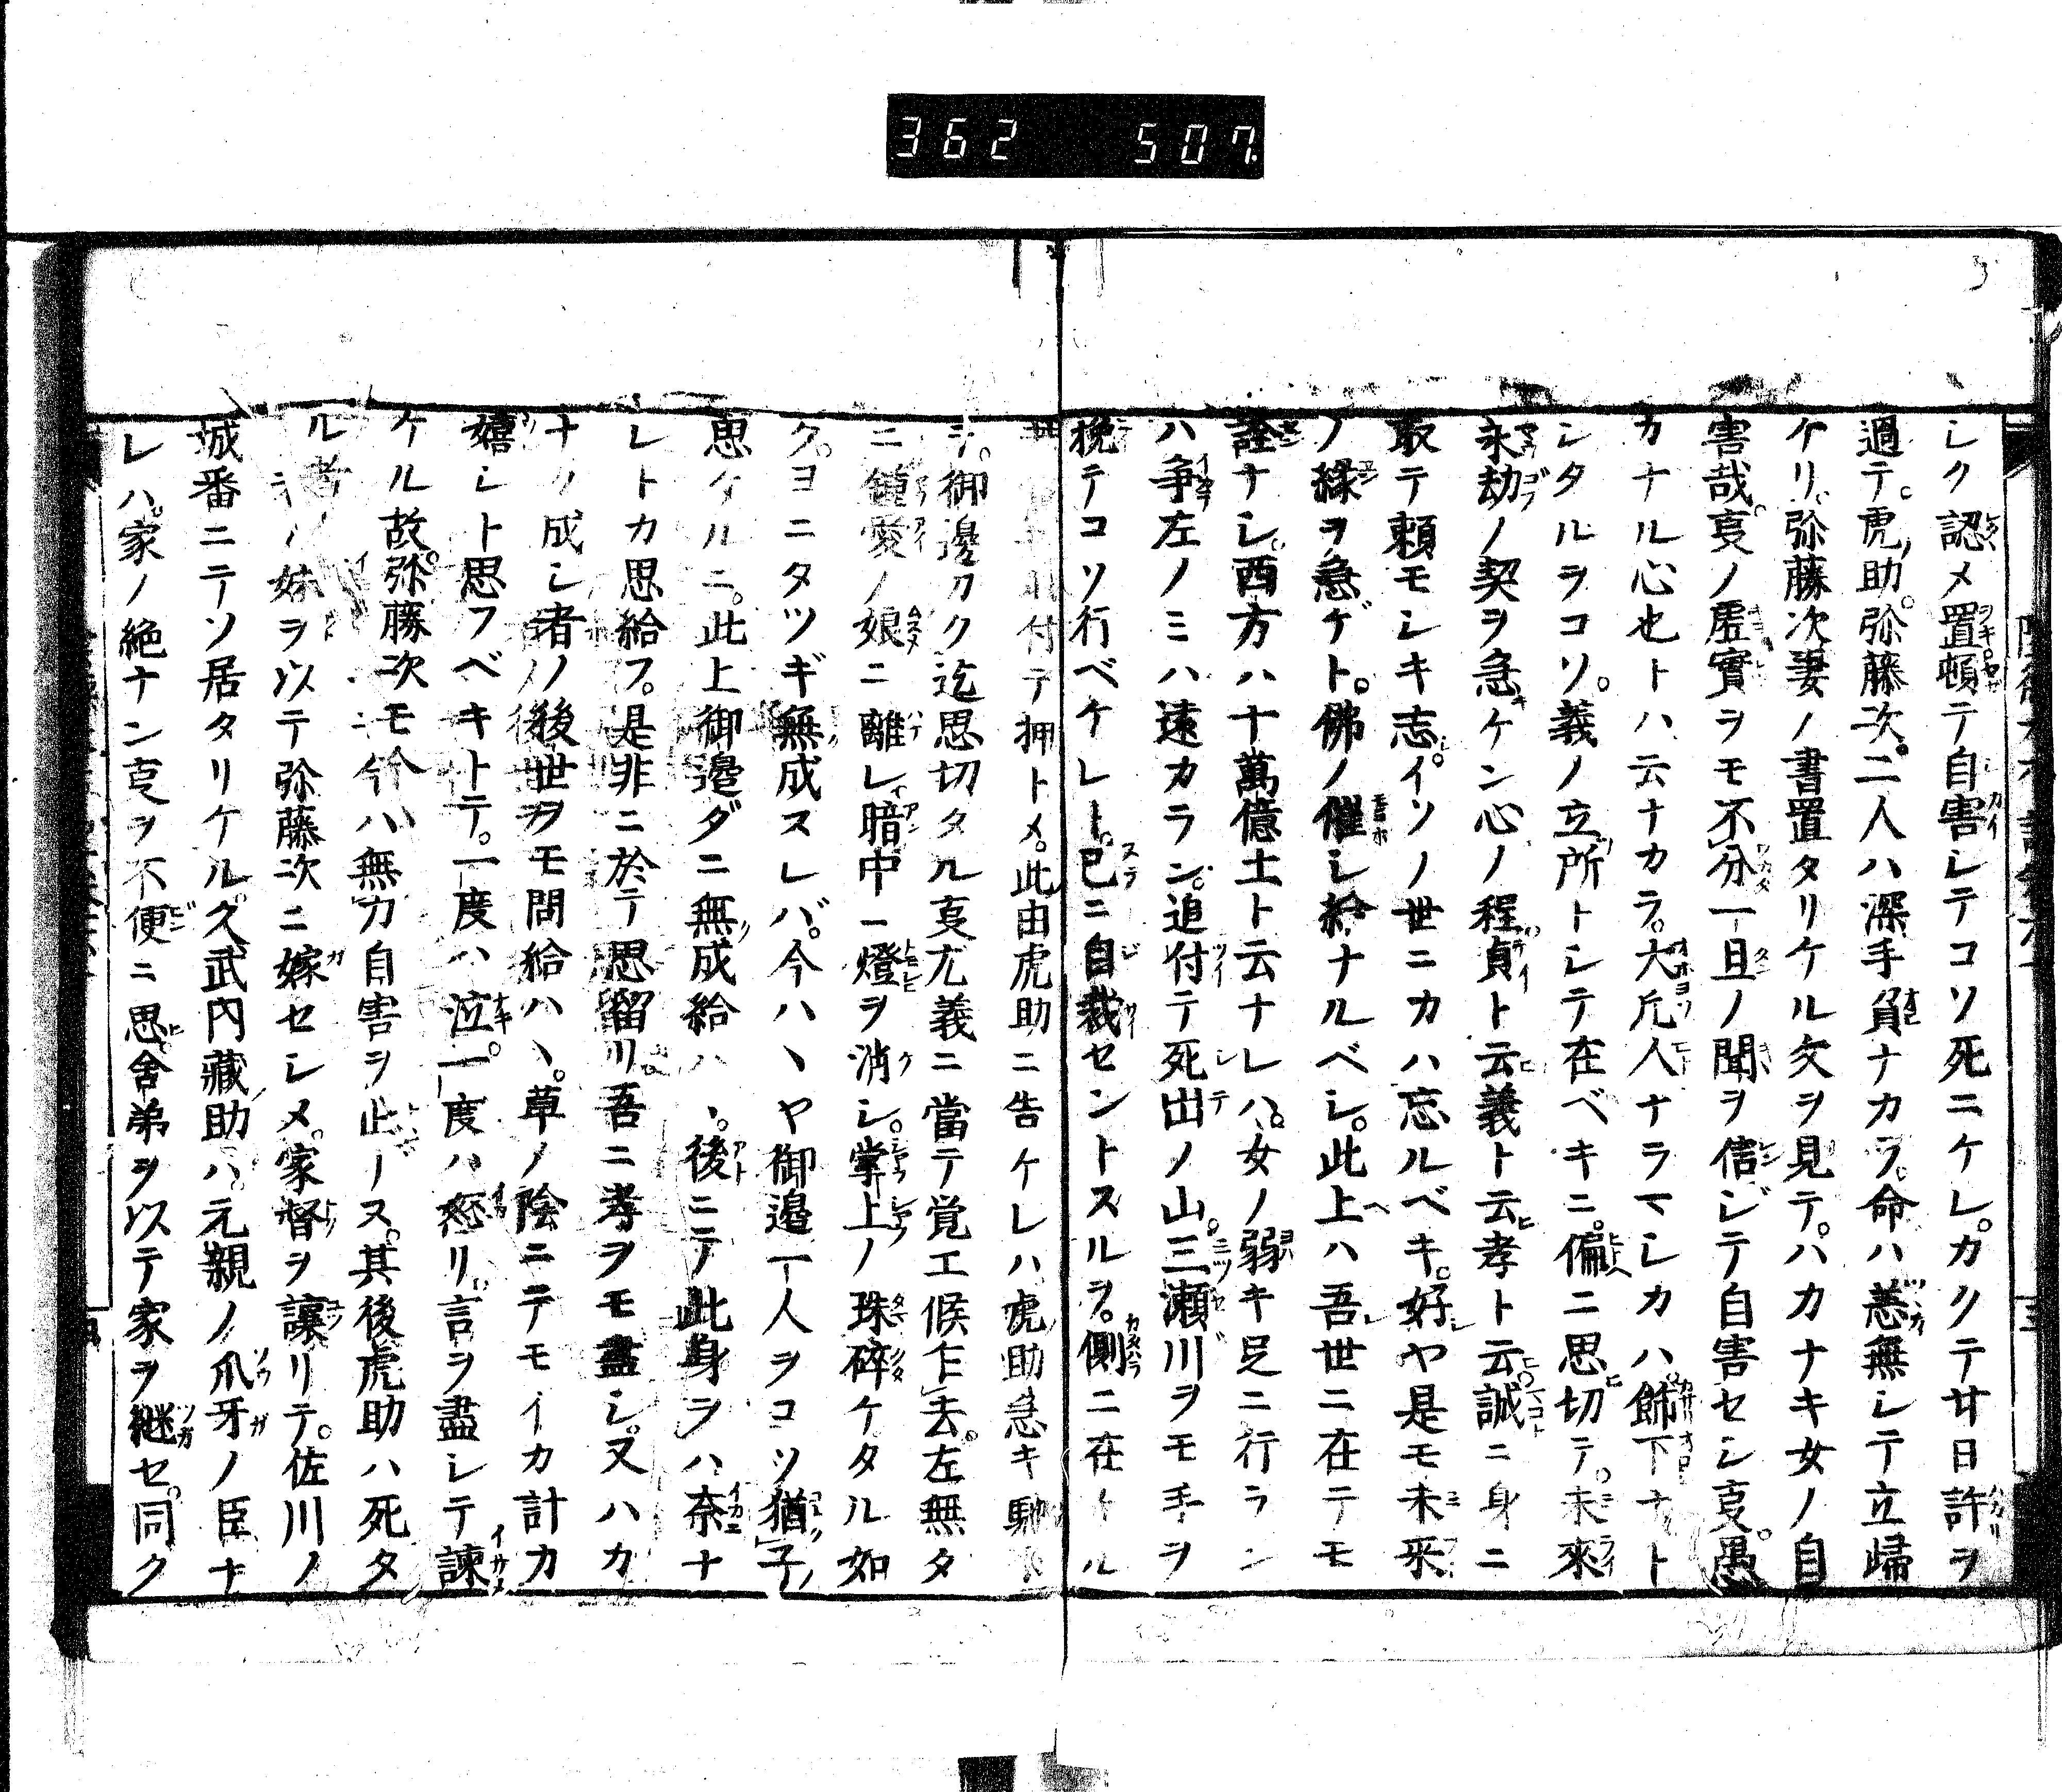 362 507
シク認メ置頓テ自害シテコソ死ニケレ。カクテ廿日許ヲ
過テ。虎助。弥藤次。二人ハ深手負ナカラ。命ハ恙無シテ立帰
ケリ。弥藤次妻ノ書置タリケル文ヲ見テ。ハカナキ女ノ自
害哉。㕝ノ虚實ヲモ不分一旦ノ聞ヲ信ジテ自害セシ㕝。愚
カナル心也トハ云ナカラ。大凡人ナラマシカハ。飾下ナト
シタルヲコソ。義ノ立所トシテ在ベキニ。偏ニ思切テ。未來
永劫ノ契ヲ急ケン心ノ程。貞ト云義ト云孝ト云。誠ニ身ニ
取テ頼モシキ志。イソノ世ニカハ忘ルベキ。好ヤ是モ未來
ノ縁ヲ急ゲト。佛ノ催シ給ナルベシ。此上ハ吾世ニ在テモ
詮ナシ。西方ハ十萬億土ト云ナレハ。女ノ弱キ足ニ行ラン
ハ争左ノミハ遠カラン。追付テ死出ノ山。三瀬川ヲモ手ヲ
挽テコソ行ベケレト。已ニ自裁セントスルヲ。側ニ在ケル
付テ押トメ。此由虎助ニ告ケレハ虎助急キ馳
テ。御邊カク迄思切タル㕝尤義ニ當テ覚エ候乍去。左無タ
ニ鍾愛ノ娘ニ離レ暗中一燈ヲ消シ。掌上ノ珠碎ケタル如
ク。ヨニタツギ無成スレバ。今ハヽヤ御邉一人ヲコソ猶子ノ
思ケルニ。此上御邉ダニ無成給ハヽ。後ニテ此身ヲハ奈ナ
レトカ思給フ。是非ニ於テ思留リ吾ニ孝ヲモ盡シ。又ハカ
ナク成シ者ノ後世ヲモ問給ハヽ。草ノ陰ニテモイカ計カ
嬉シト思フベキトテ。一度ハ泣一度ハ怒リ。言ヲ盡シテ諫
ケル故。弥藤次モ今ハ無力自害ヲ止ノヌ。其後虎助ハ死タ
ル者ノ妹ヲ以テ弥藤次ニ嫁セシメ。家督ヲ譲リテ。佐川ノ
城番ニテソ居タリケル。久武内藏助ハ。元親ノ爪牙ノ臣ナ
レハ。家ノ絶ナン㕝ヲ不便ニ思舍弟ヲ以テ家ヲ継セ。同ク